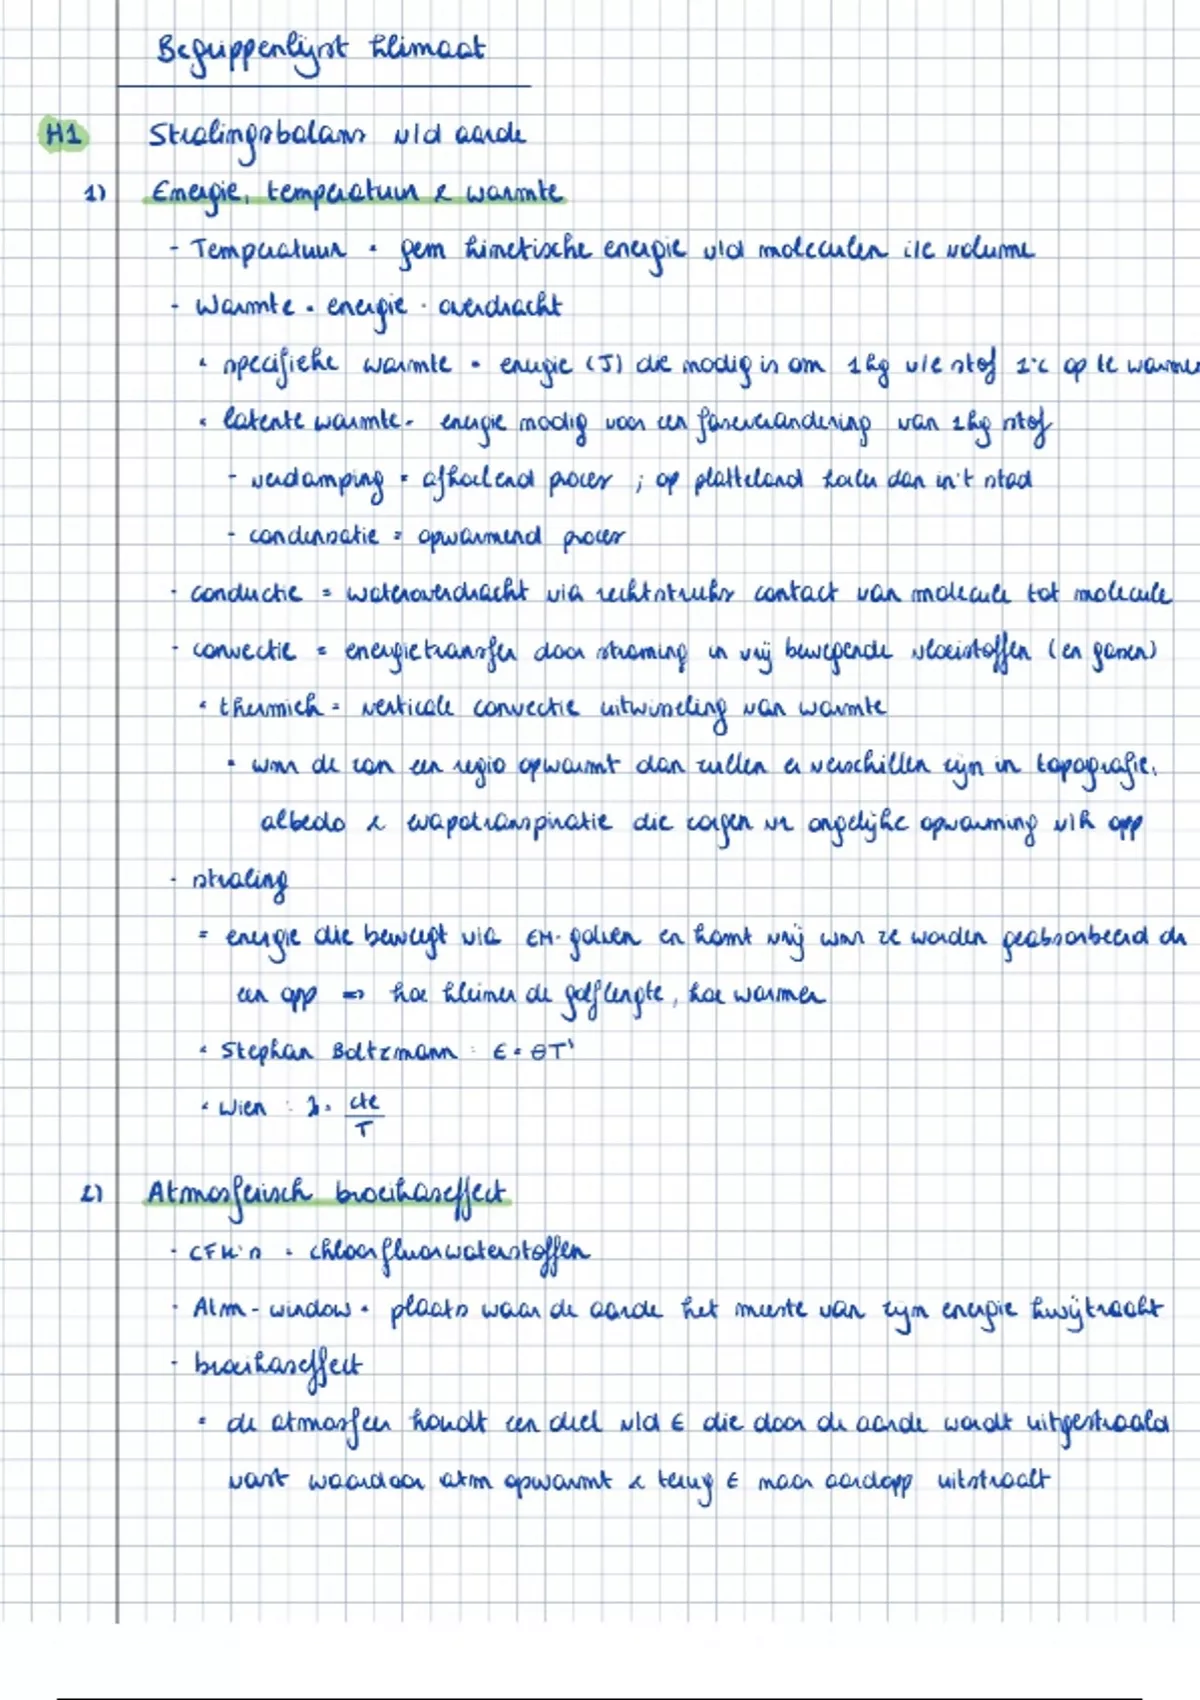 Begrippenlijst klimaat
H1 Stralingsbalans v/d aarde
1) Energie, temperatuur & warmte
- Temperatuur = gem kinetische energie v/d moleculen i/e volume
- Warmte = energie-overdracht
• specifieke warmte = energie (J) die nodig is om 1kg v/e stof 1°C op te warmen
• latente warmte = energie nodig voor een faseverandering van 1kg stof
- verdamping = afkoelend proces ; op platteland koeler dan in 't stad
- condensatie = opwarmend proces
- conductie = wateroverdracht via rechtstreeks contact van molecule tot molecule
- convectie = energietransfer door stroming in vrij bewegende vloeistoffen (en gassen)
• thermich = verticale convectie uitwisseling van warmte
• wnr de zon een regio opwarmt dan zullen er verschillen zijn in topografie,
albedo & evapotranspiratie die zorgen vr ongelijke opwarming v/h opp
- straling
= energie die beweegt via EM-golven en komt vrij wnr ze worden geabsorbeerd dr
een opp => hoe kleiner de golflengte, hoe warmer
• Stephan Boltzmann : E = θT⁴
• Wien : λ = cte/T
2) Atmosferisch broeikaseffect
- CFK's = chloorfluorwaterstoffen
- Atm-window = plaats waar de aarde het meeste van zijn energie kwijtraakt
- broeikaseffect
= de atmosfeer houdt een deel v/d E die door de aarde wordt uitgestraald
vast waardoor atm opwarmt & terug E naar aardopp uitstraalt